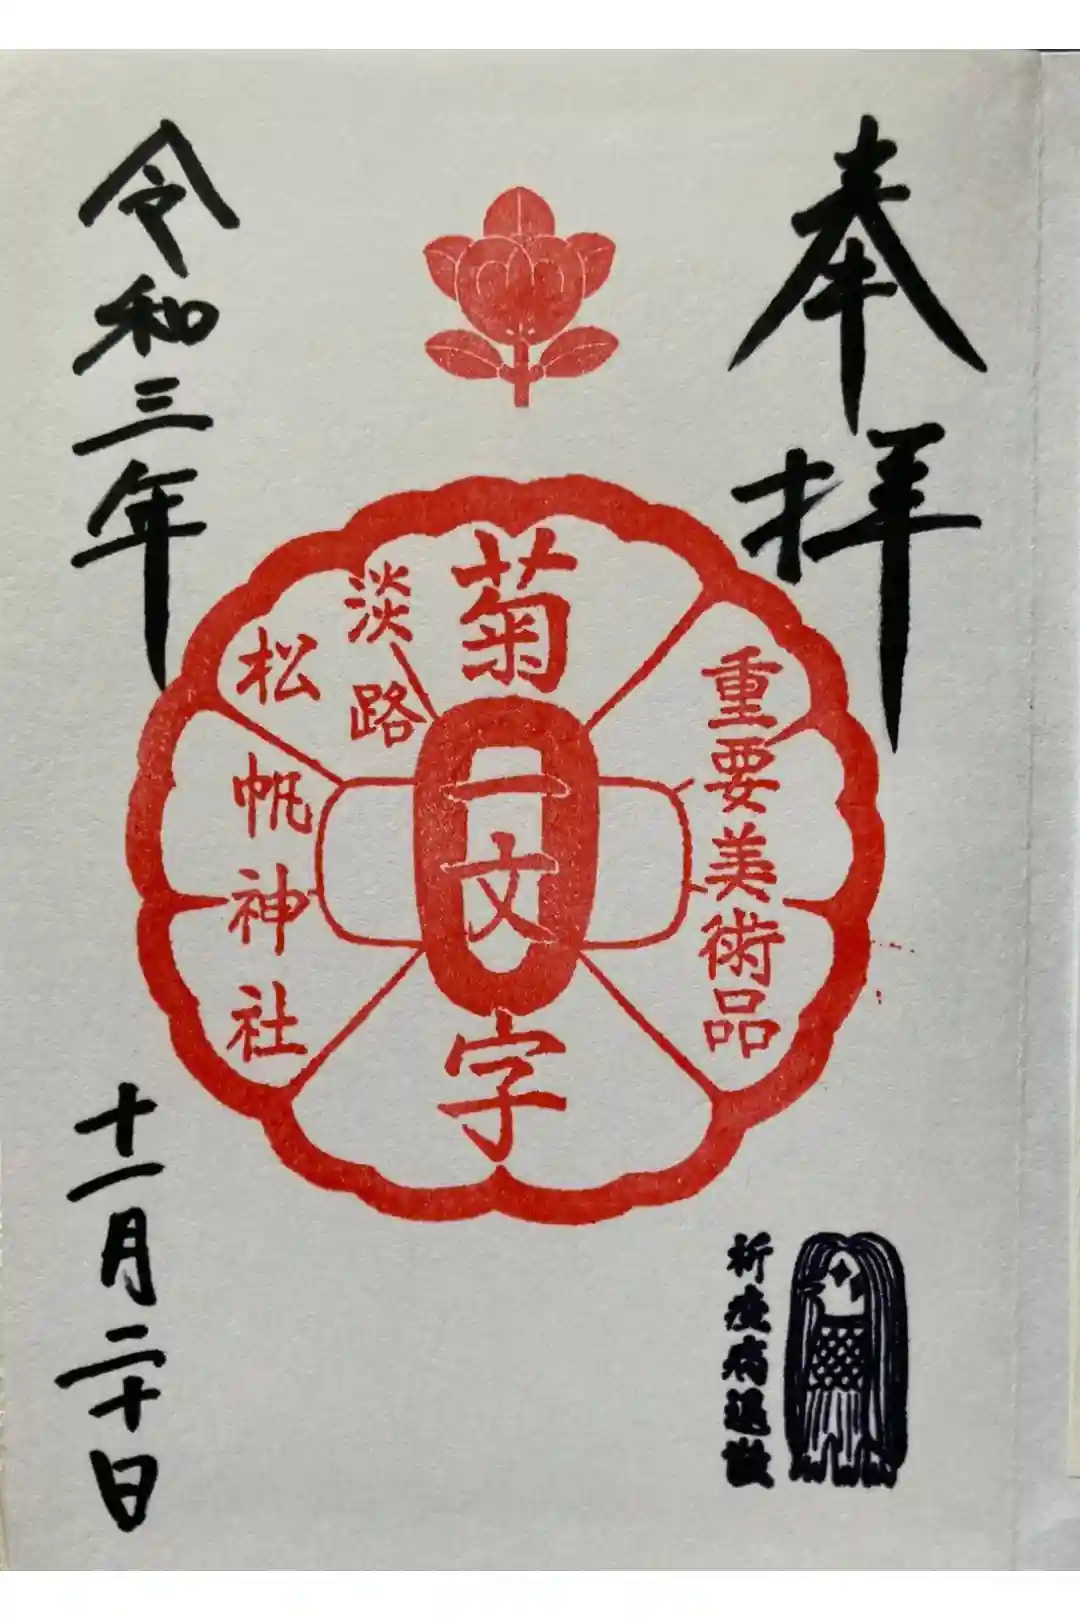 奉拝
重要美術品
菊一文字
淡路
松帆神社
祈疫病退散
令和三年
十一月二十日